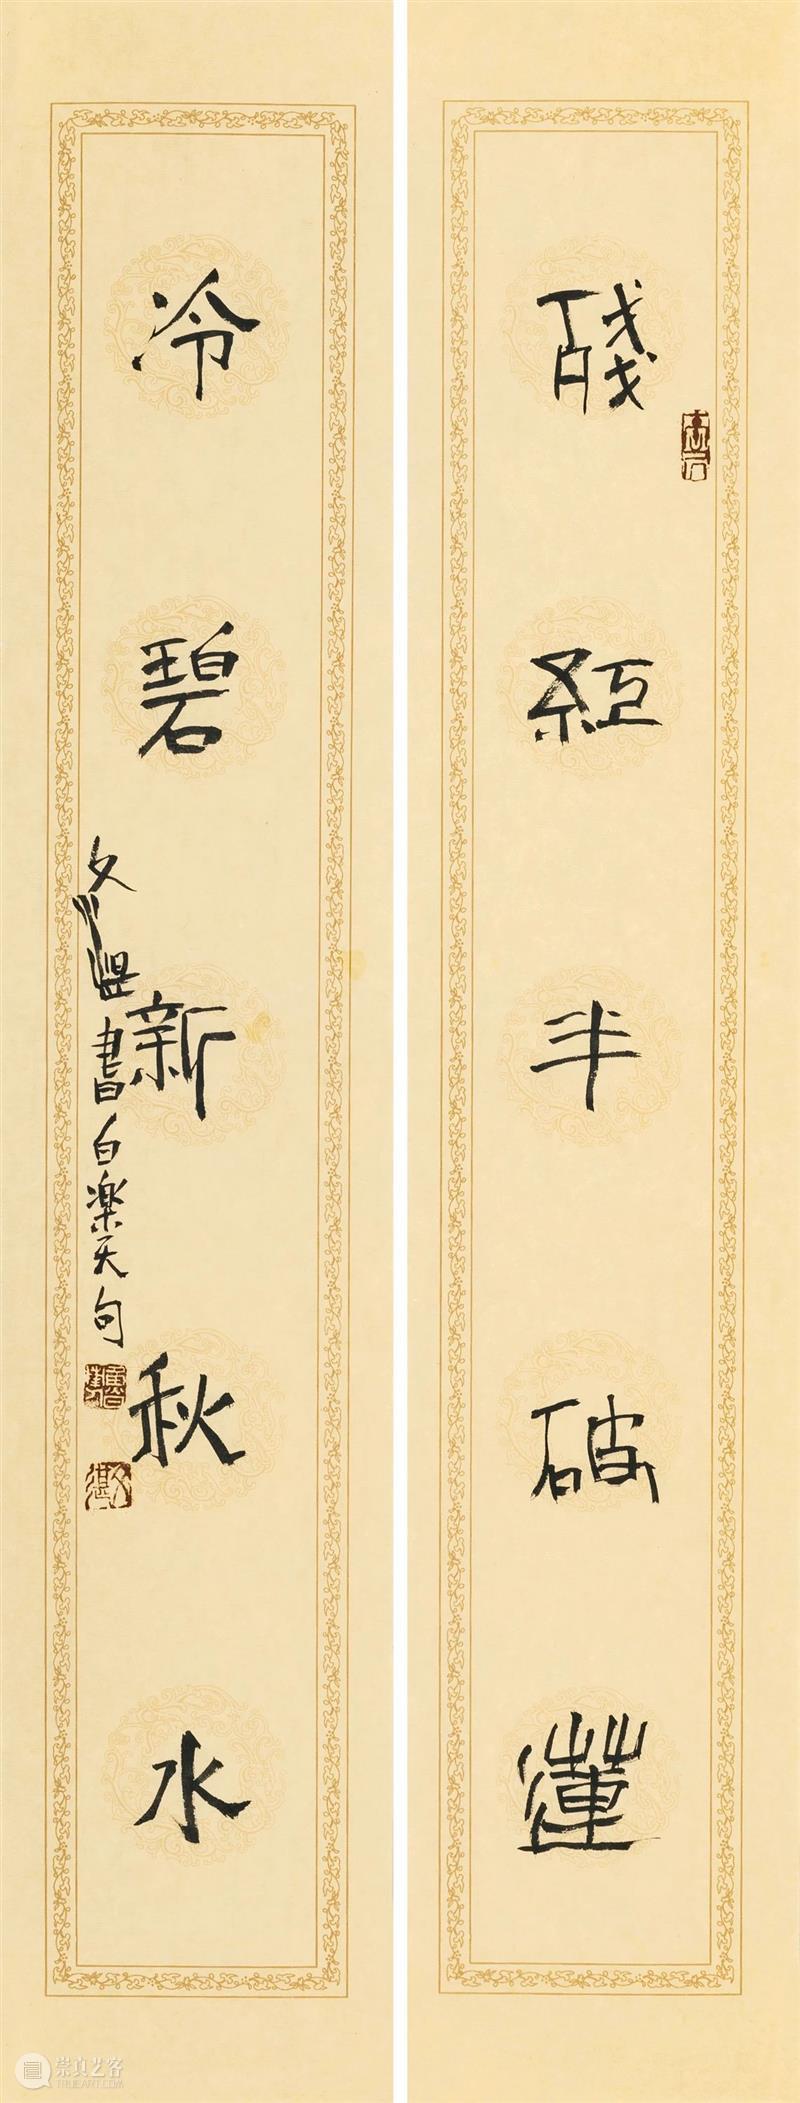 殘紅半破蓮
冷碧新秋水
書白樂天句
崇真艺客
TRUEART.COM